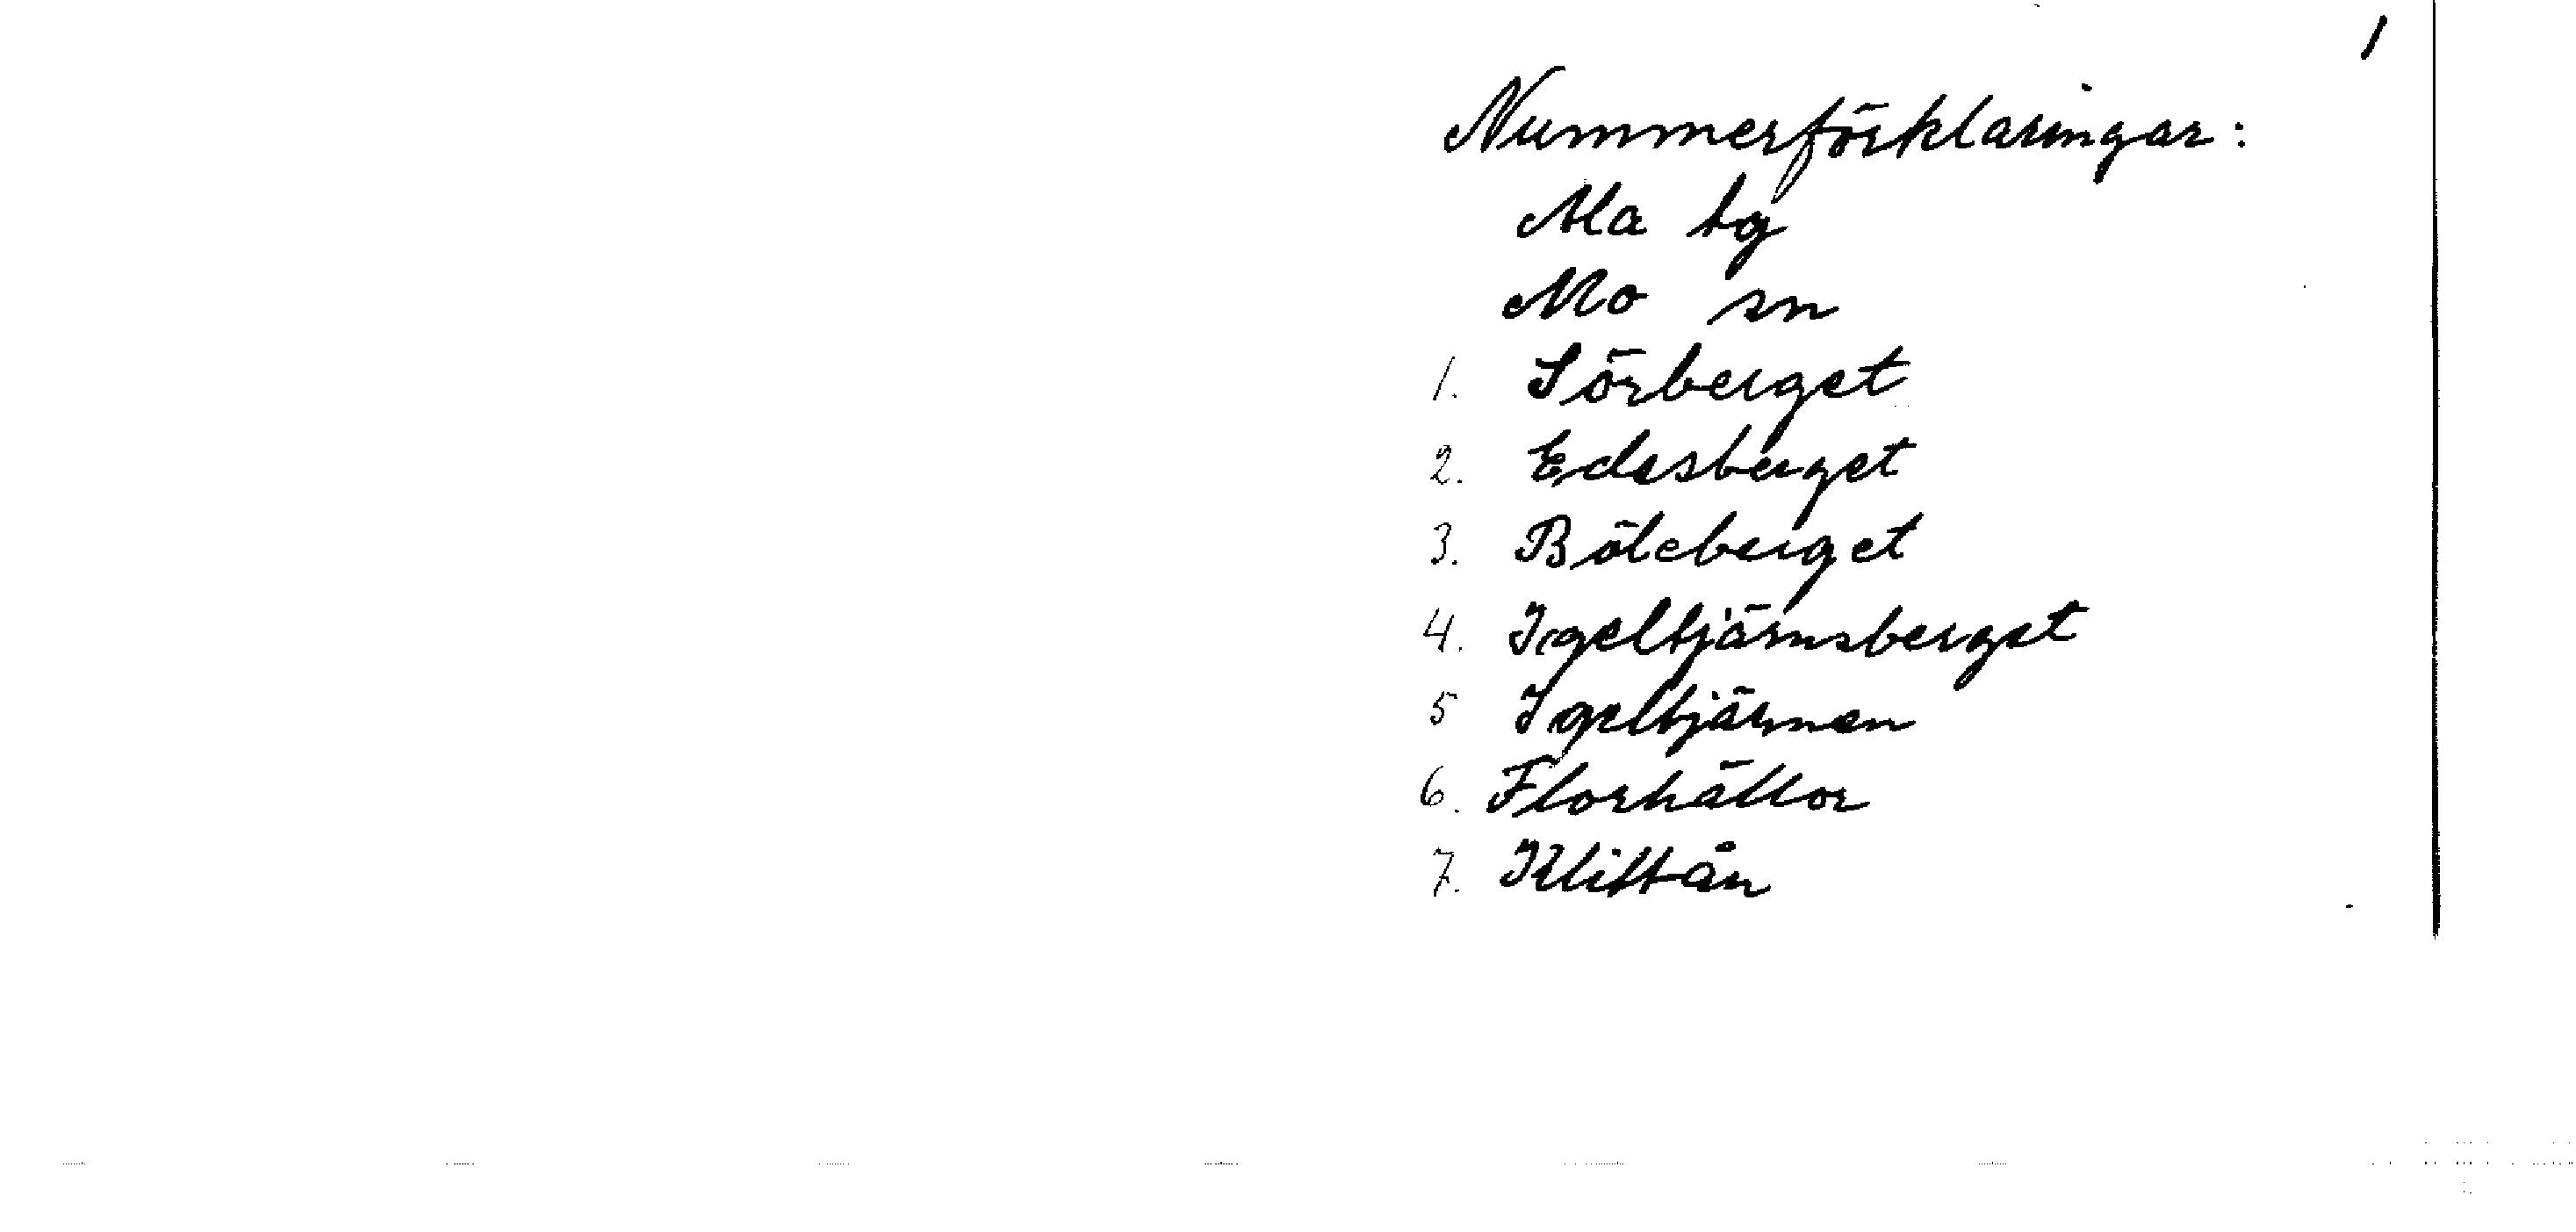 1
Nummerförklaringar:
Ala tg
Mo sn
1. Sörberget
2. Edesberget
3. Böleberget
4. Igeltjärnsberget
5 Igeltjärnen
6. Florhällor
7. Klittån